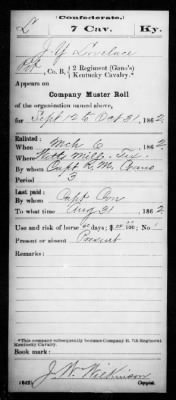 (Confederate.)
L 7 Cav. Ky.
J. Y. Lovelace
Pvt, Co. B, 2 Regiment (Gano's) Kentucky Cavalry.*
Appears on
Company Muster Roll
of the organization named above,
for Sept 12 to Oct 31, 1862
Enlisted:
When Mch 6, 1862
Where Mill, Tex
By whom Capt R. M. Gano
Period 3
Last paid:
By whom Capt
To what time Aug 31, 1862
Use and risk of horse days; $ No.
Present or absent Present
Remarks:
*This company subsequently became Company B, 7th Regiment
Kentucky Cavalry.
Book mark:
J. W. Wilkinson
(642) Copyist.